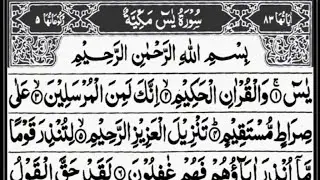 اٰيَاتُهَا ٨٣ سُوْرَةُ يٰسٓ مَكِّيَّةٌ رُكُوْعَاتُهَا ٥
بِسْمِ اللّٰهِ الرَّحْمٰنِ الرَّحِيْمِ
يٰسٓ ۚ﴿۱﴾ وَالْقُرْاٰنِ الْحَكِيْمِ ۙ﴿۲﴾ اِنَّكَ لَمِنَ الْمُرْسَلِيْنَ ۙ﴿۳﴾ عَلٰى
صِرَاطٍ مُّسْتَقِيْمٍ ؕ﴿۴﴾ تَنْزِيْلَ الْعَزِيْزِ الرَّحِيْمِ ۙ﴿۵﴾ لِتُنْذِرَ قَوْمًا
مَّاۤ اُنْذِرَ اٰبَآؤُهُمْ فَهُمْ غٰفِلُوْنَ ﴿۶﴾ لَقَدْ حَقَّ الْقَوْلُ